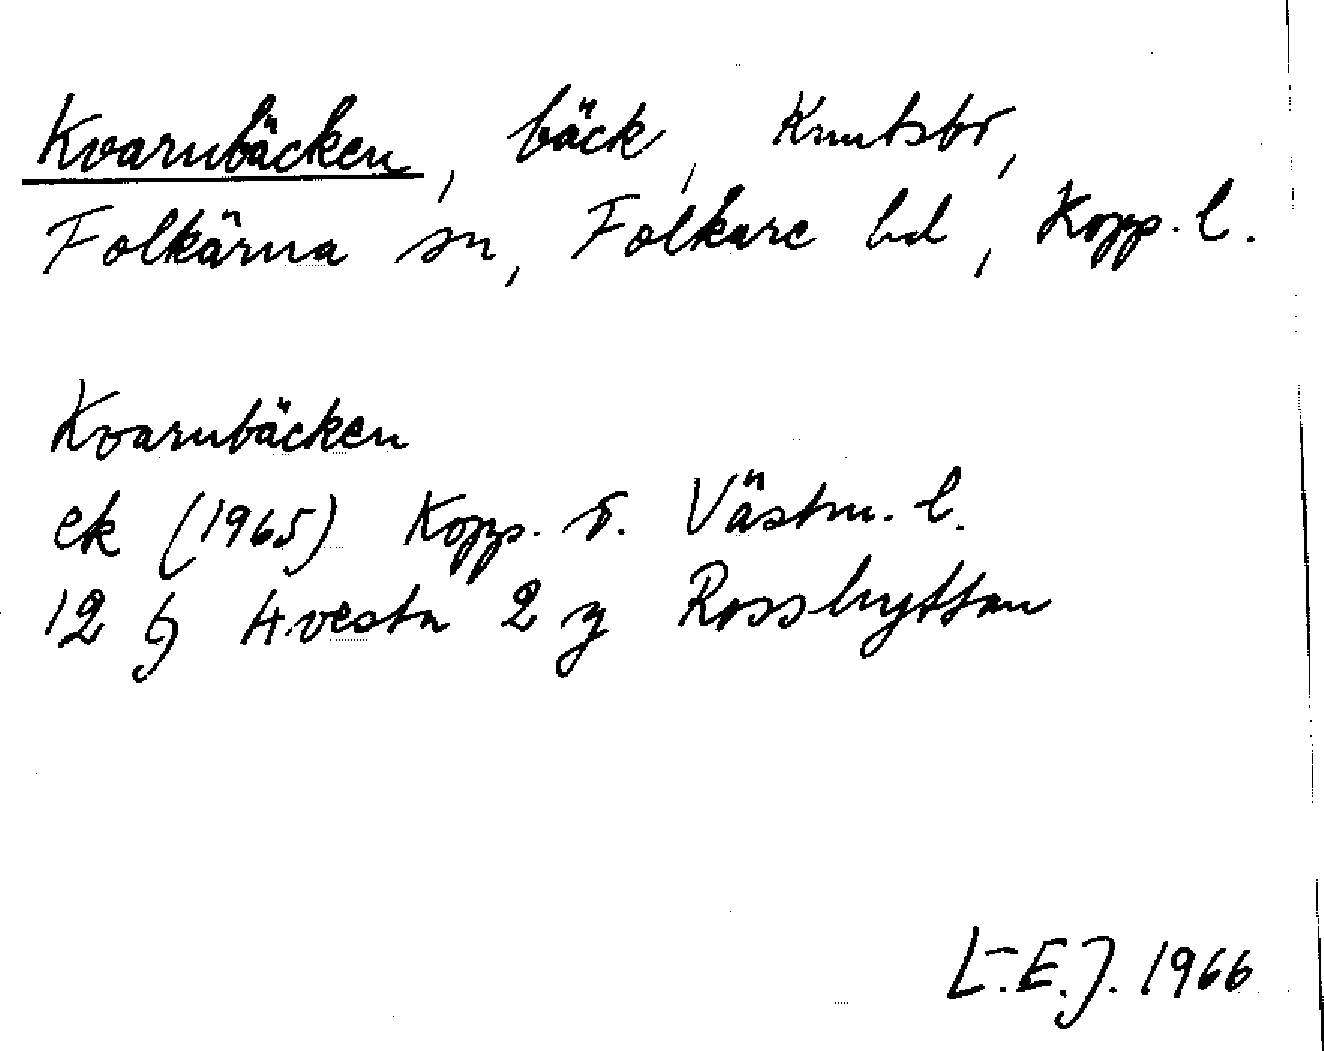 Kvarnbäcken, bäck, Knutsbr,
Folkärna sn, Folkare hd, Kopp. l.
Kvarnbäcken
ek (1965) Kopp. o. Västm. l.
12 G Avesta 2 g Rosshyttan
L-E.J. 1966